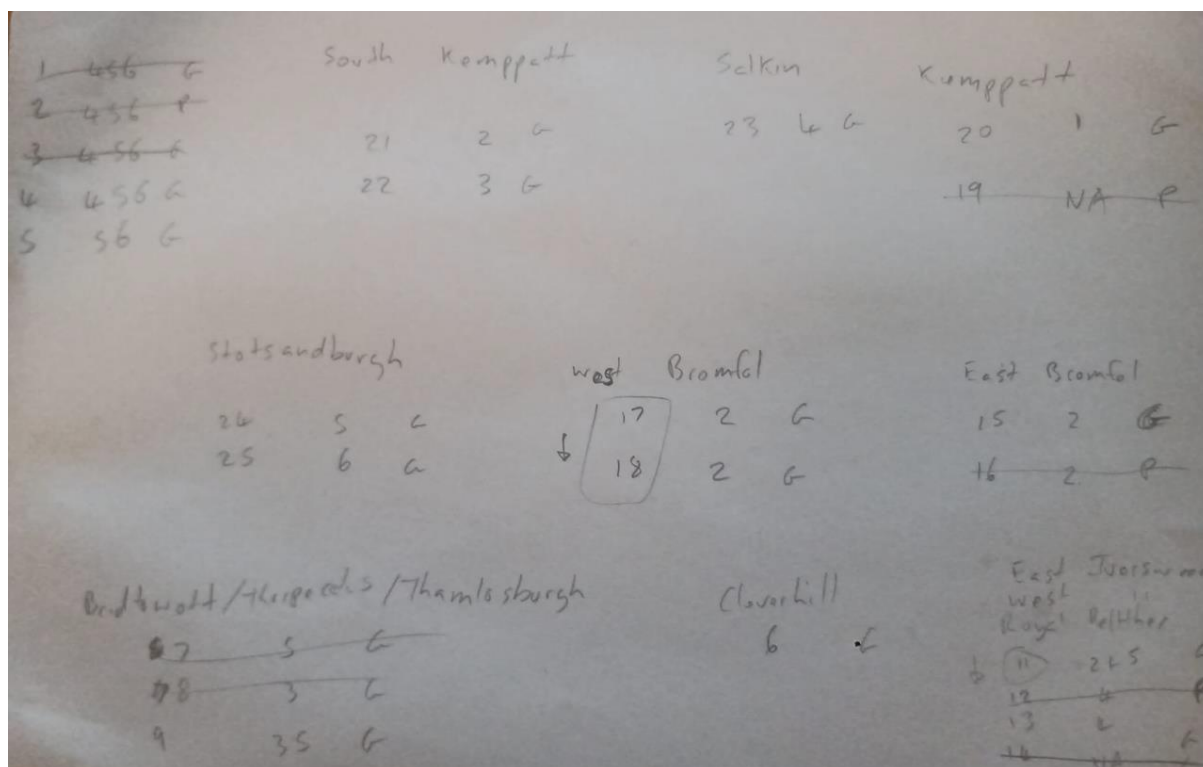 1 456 G
2 456 P
3 456 G
4 456 G
5 56 G
South Kemppatt
21 2 G
22 3 G
Salkin
23 4 G
Kemppatt
20 1 G
19 NA P
Stotsandburgh
24 5 G
25 6 G
West Bromfol
17 2 G
18 2 G
East Bromfol
15 2 G
16 2 P
/Thamlosburgh
7 5 G
8 3 G
9 35 G
Cloverhill
6 G
East
West
Royal
11 245 G
12 4 P
13 2 G
14 NA